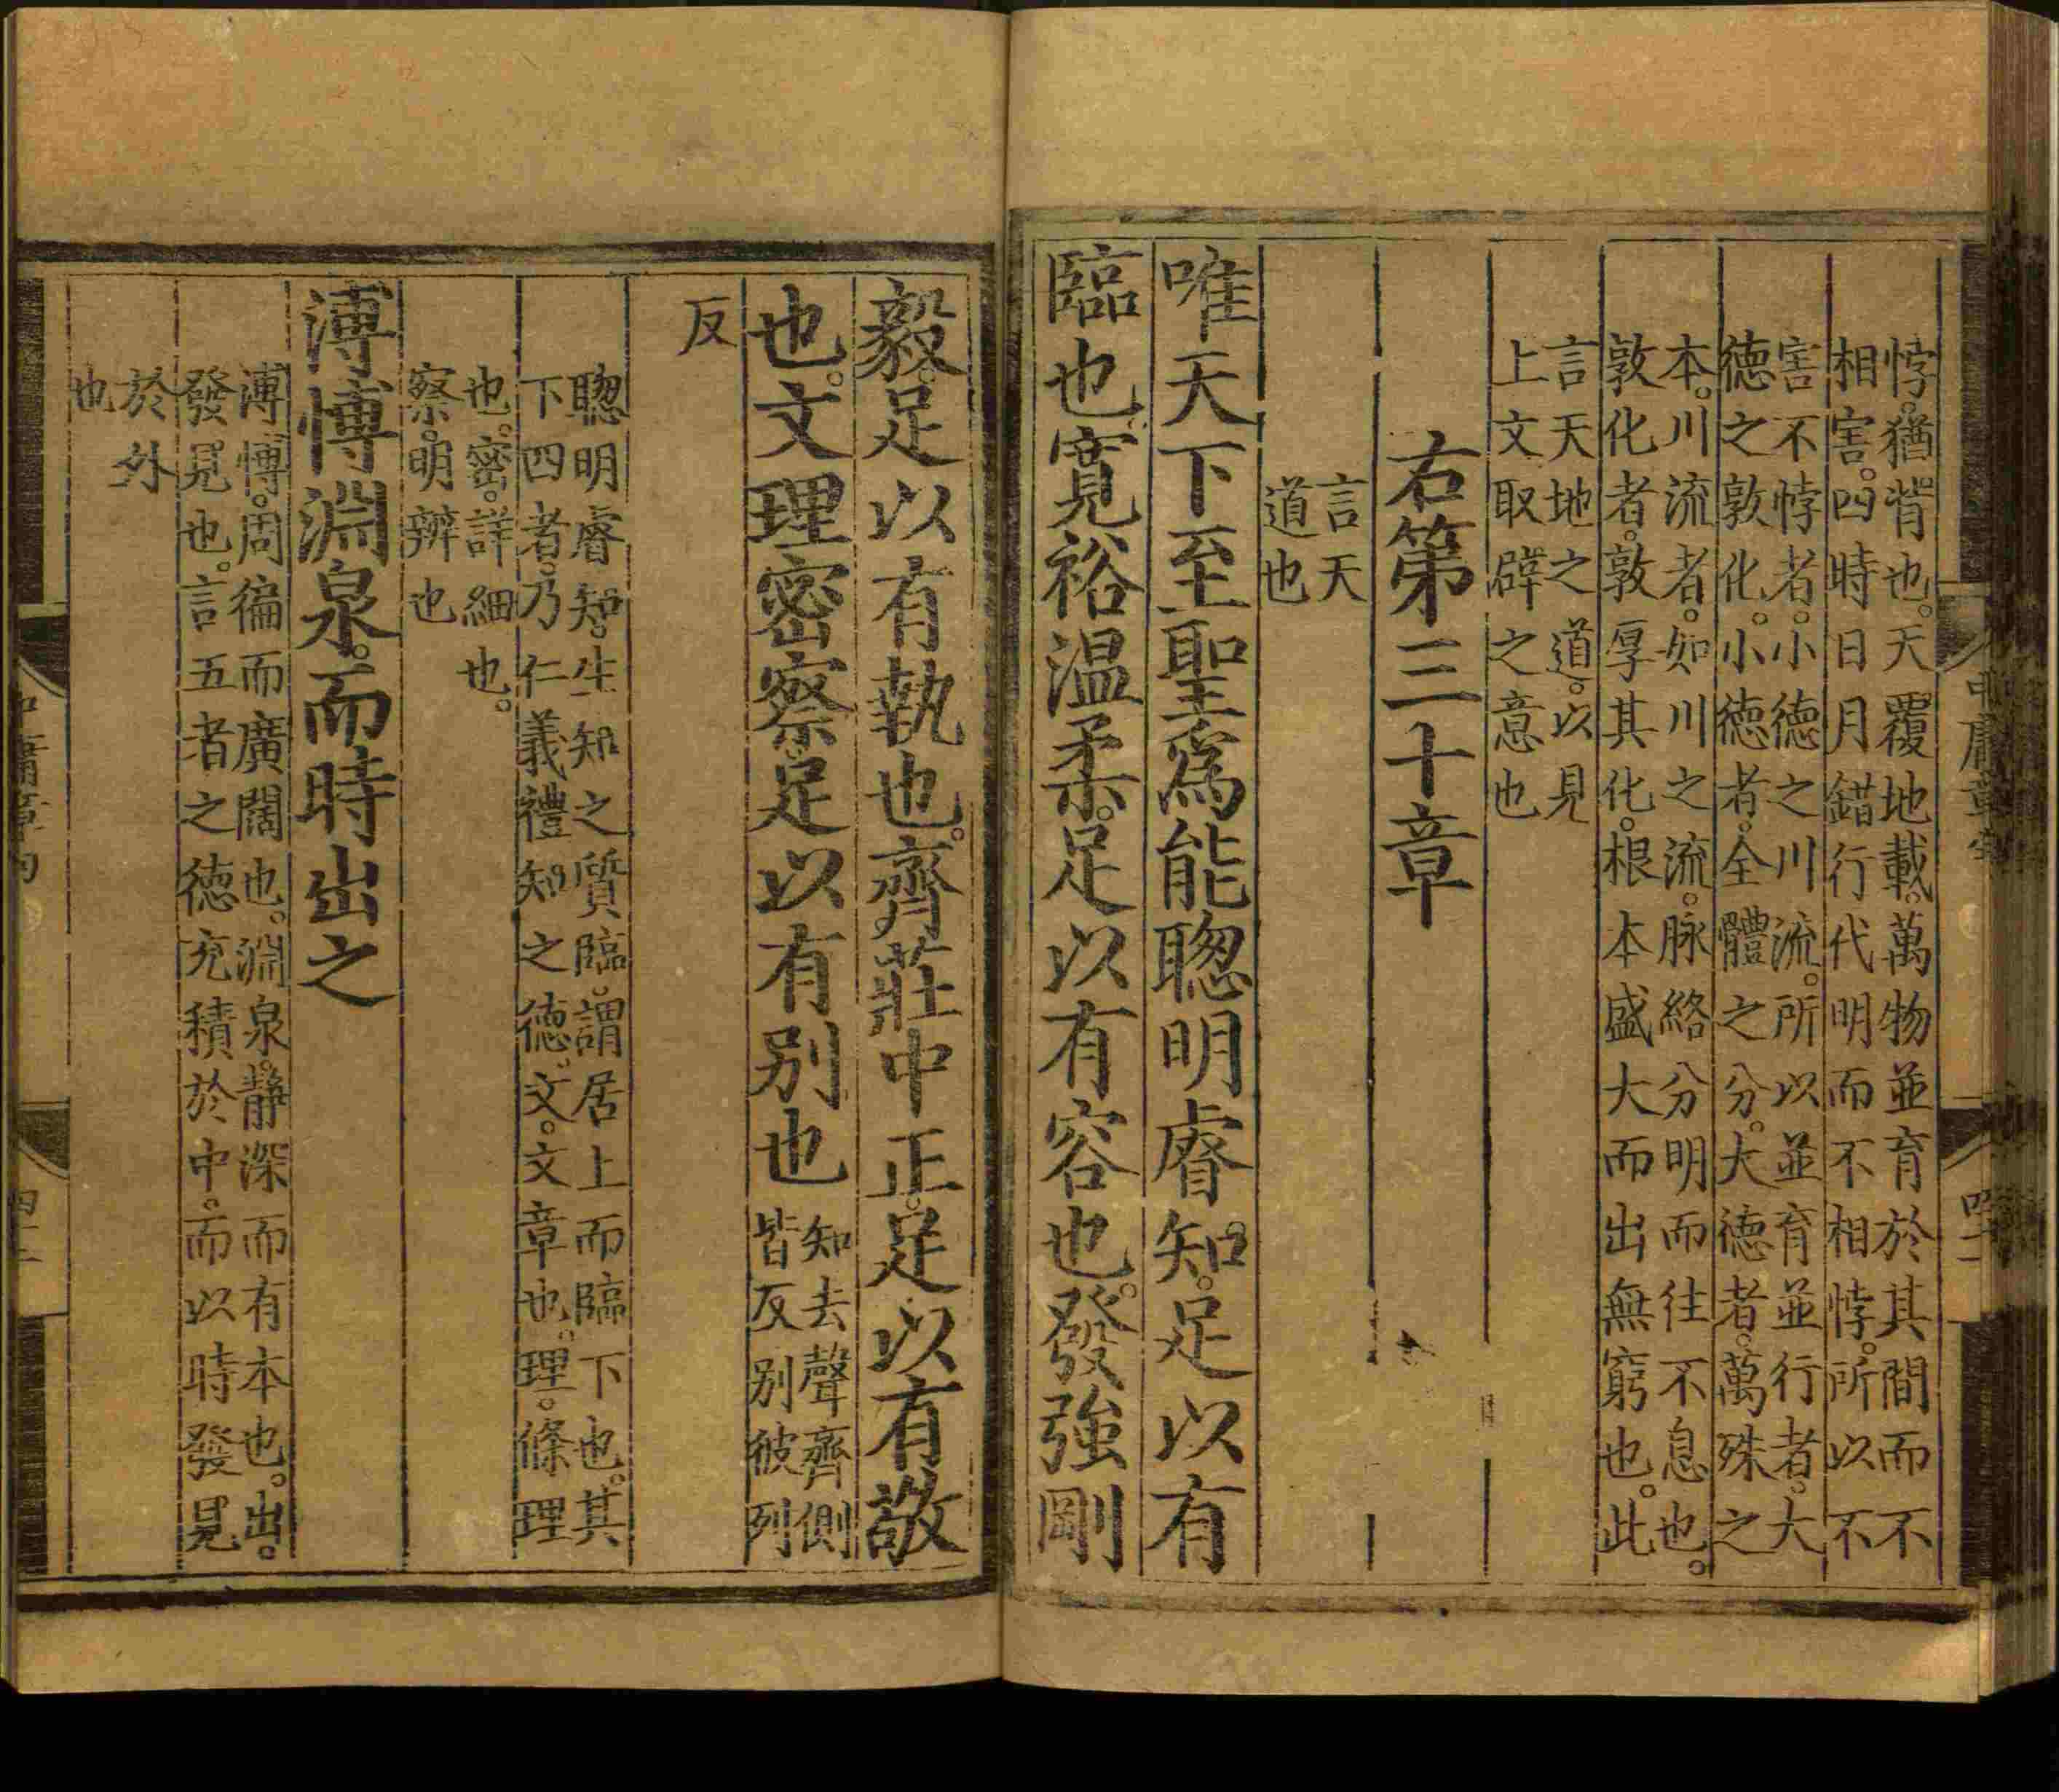 悖。猶背也。天覆地載。萬物並育於其間而不
相害。四時日月錯行代明而不相悖。所以不
害不悖者。小德之川流。所以並育並行者。大
德之敦化。小德者。全體之分。大德者。萬殊之
本。川流者。如川之流。脉絡分明而往不息也。
敦化者。敦厚其化。根本盛大而出無窮也。此
言天地之道。以見
上文取辟之意也
右第三十章
言天
道也
唯天下至聖爲能聦明睿知。足以有
臨也。寬裕温柔。足以有容也。發強剛
毅。足以有執也。齊莊中正。足以有敬
也。文理密察。足以有别也
知去聲齊側
皆反别彼列
反
聦明睿知。生知之質。臨。謂居上而臨下也。其
下四者。乃仁義禮知之德。文。文章也。理。條理
也。密。詳細也。
察。明辨也
溥愽淵泉。而時出之
溥愽。周徧而廣闊也。淵泉。静深而有本也。出。
發見也。言五者之德充積於中。而以時發見
於外
也